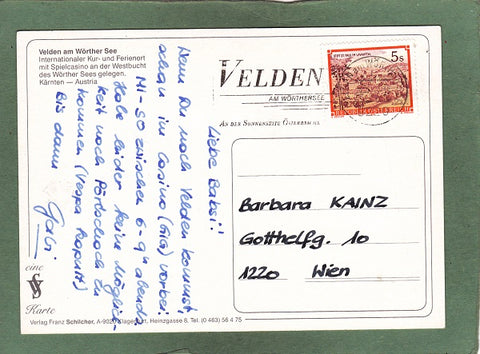 Velden am Wörther See
Internationaler Kur- und Ferienort
mit Spielcasino an der Westbucht
des Wörther Sees gelegen.
Kärnten — Austria
Liebe Babsi!
Wenn Du nach Velden kommst,
schau im Casino (GIG) vorbei
MI-SO zwischen 6-9h abends
Habe leider keine Möglich-
keit nach Pörtschach zu
kommen (Vespa kaputt)
Bis dann Gabi
eine
Karte
Verlag Franz Schilcher, A-9020 Klagenfurt, Heinzgasse 8, Tel. (0 463) 56 4 75
VELDEN
AM WÖRTHERSEE
AN DER SONNENSEITE ÖSTERREICHS
5s
REPUBLIK ÖSTERREICH
Barbara KAINZ
Gotthelfg. 10
1220 Wien